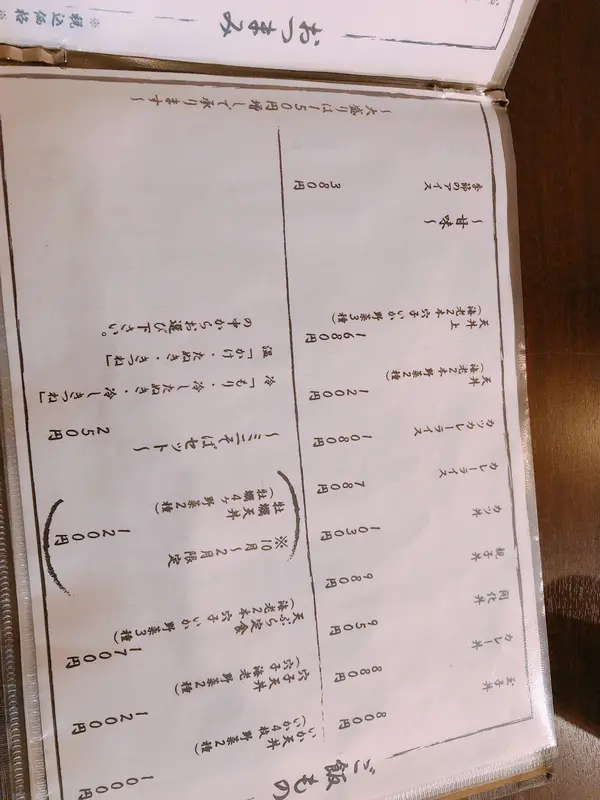 ご飯もの
玉子丼 800円
カレー丼 880円
開化丼 950円
親子丼 980円
カツ丼 1030円
カレーライス 780円
カツカレーライス 1080円
天丼 1200円
(海老2本 野菜2種)
天丼上 1680円
(海老2本 穴子 いか 野菜3種)
~甘味~
季節のアイス 380円
いか天丼 1000円
(いか4枚 野菜2種)
穴子天丼 1200円
(穴子 海老 野菜2種)
天ぷら定食 1700円
(海老2本 穴子 いか 野菜3種)
※10月~2月限定
牡蠣天丼 1200円
(牡蠣4ヶ 野菜2種)
~ミニそばセット~ 250円
冷「もり・冷したぬき・冷しきつね」
温「かけ・たぬき・きつね」
の中からお選び下さい。
~大盛りは150円増しで承ります~
おつまみ
※税込価格